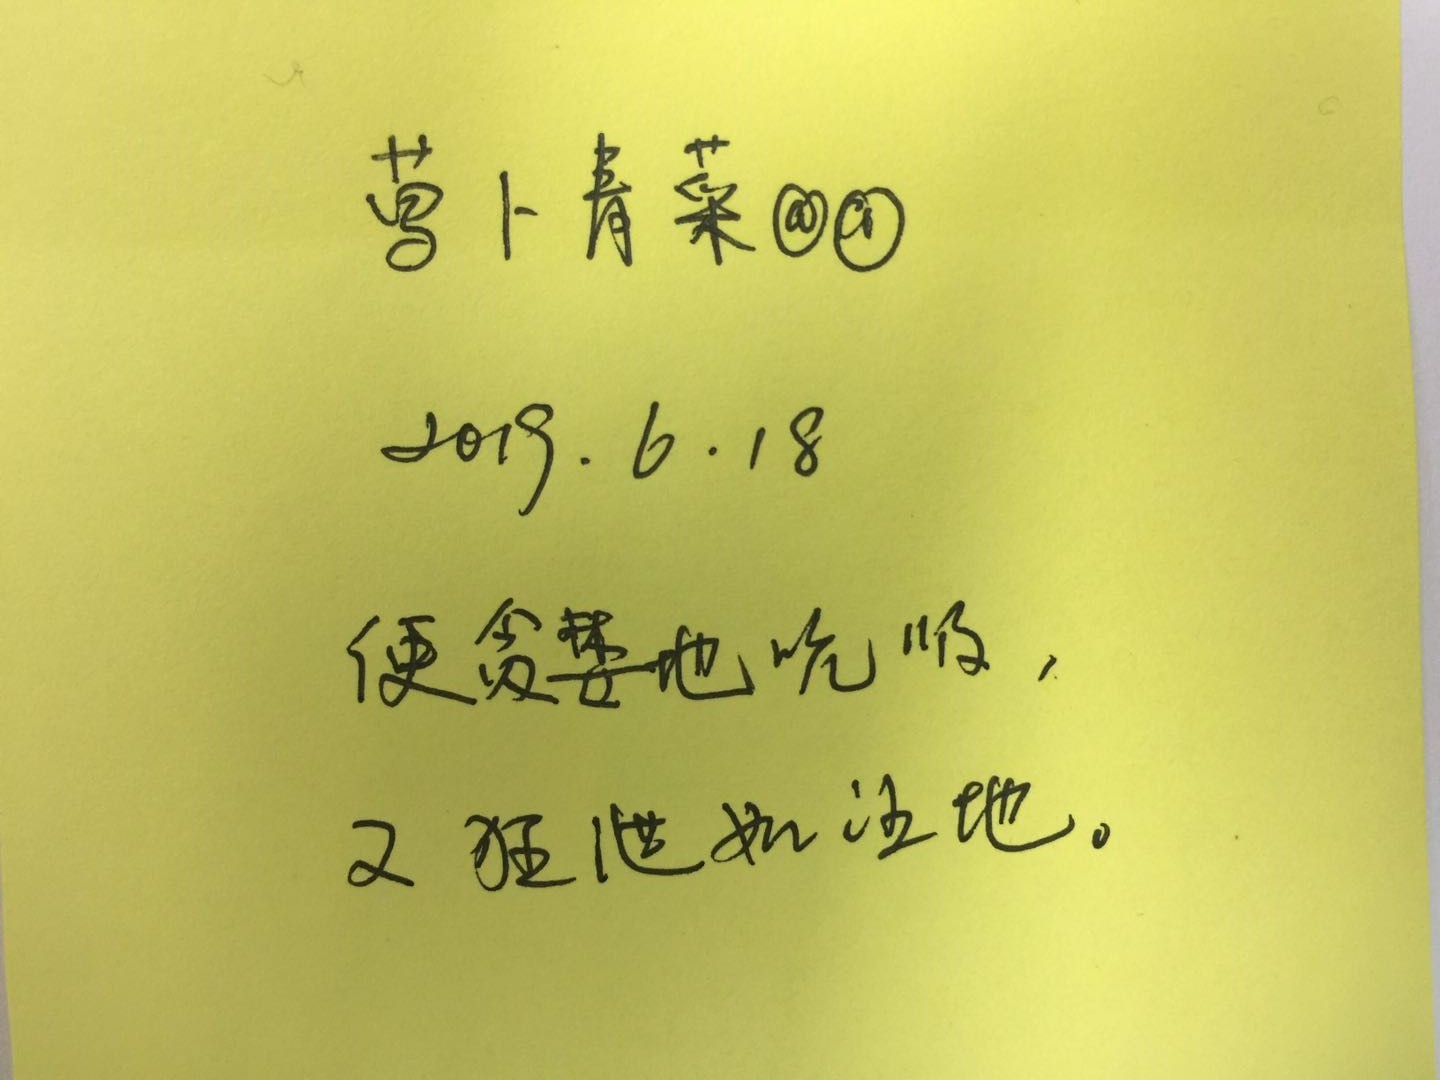 萝卜青菜@@
2019.6.18
便贪婪地吮吸，
又狂泄如注地。